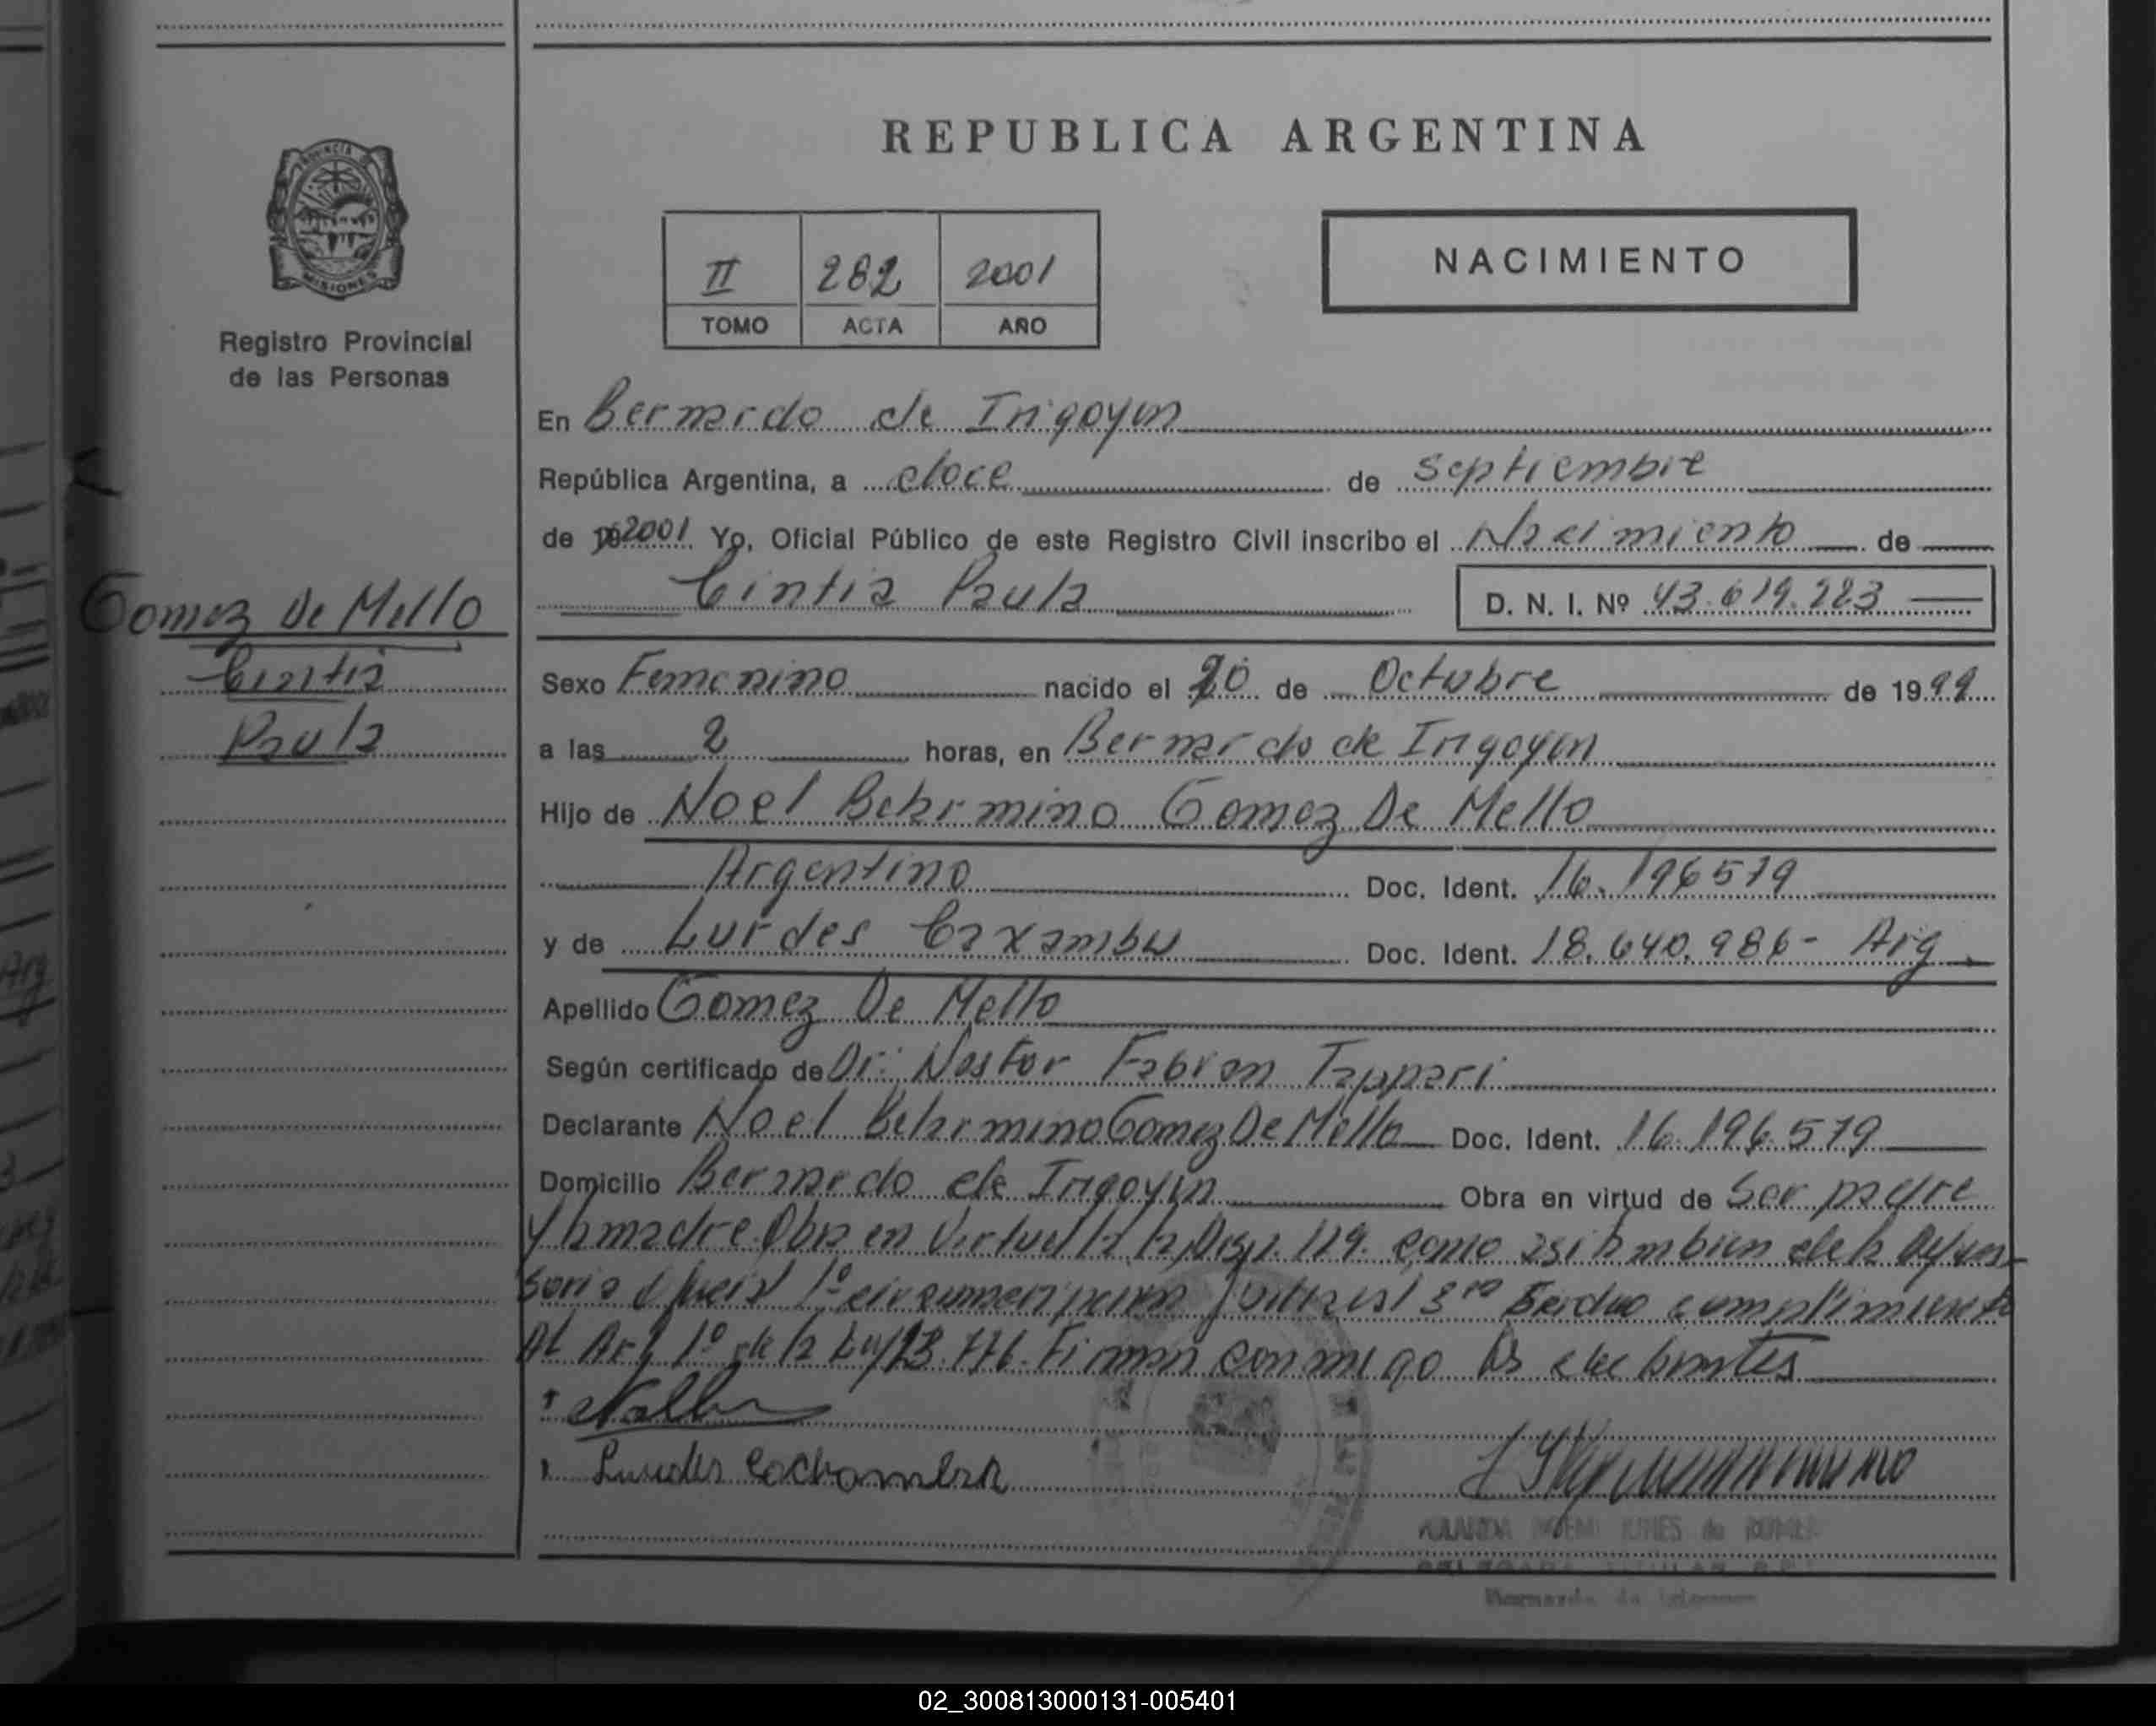 REPUBLICA ARGENTINA
PROVINCIA DE
MISIONES
Registro Provincial
de las Personas
II 282 2001
TOMO ACTA AÑO
NACIMIENTO
En Bernardo de Irigoyen
República Argentina, a doce de Septiembre
de 2001 Yo, Oficial Público de este Registro Civil inscribo el Nacimiento de
Cintia Paula D. N. I. Nº 43.619.223
Gomez De Mello
Cintia
Paula
Sexo Femenino nacido el 20 de Octubre de 1999
a las 2 horas, en Bernardo de Irigoyen
Hijo de Noel Belarmino Gomez De Mello
Argentino Doc. Ident. 16.196579
y de Lurdes Caxambu Doc. Ident. 18.640.986- Arg
Apellido Gomez De Mello
Según certificado de Dr: Nestor Fabian Tappari
Declarante Noel Belarmino Gomez De Mello Doc. Ident. 16.196.579
Domicilio Bernardo de Irigoyen Obra en virtud de Ser padre
y la madre Obra en Virtud a la Disp. 119. como asi tambien de la
1º circunscripcion Judicial 3ra cumplimiento
Al Art 1º de la Ley 23.776. Firman conmigo los declarantes
Lurdes
Bernardo de Irigoyen
02_300813000131-005401